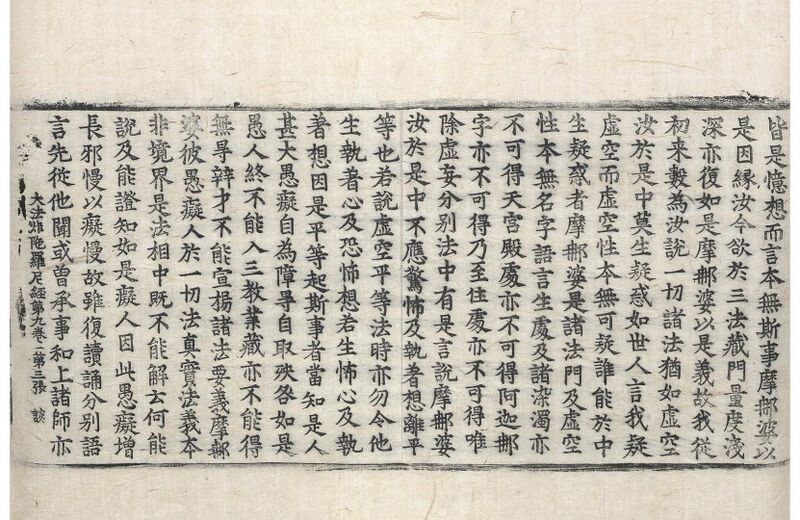 皆是憶想而言本無斯事摩那婆以
是因緣汝今欲於三法藏門量度淺
深亦復如是摩那婆以是義故我從
初来數為汝說一切諸法猶如虛空
汝於是中莫生疑惑如世人言我疑
虛空而虛空性本無可疑誰能於中
生疑惑者摩那婆是諸法門及虛空
性本無名字語言生處及諸染濁亦
不可得天宮殿處亦不可得阿迦那
字亦不可得乃至住處亦不可得唯
除虛妄分別法中有是言說摩那婆
汝於是中不應驚怖及執著想離平
等也若說虛空平等法時亦勿令他
生執著心及恐怖想若生怖心及執
著想因是平等起斯事者當知是人
甚大愚癡自為障㝵自取殃咎如是
愚人終不能入三教業藏亦不能得
無㝵辯才不能宣揚諸法要義摩那
婆彼愚癡人於一切法真實法義本
非境界是法相中既不能解云何能
說及能證知如是癡人因此愚癡增
長邪慢以癡慢故雖復讀誦分別語
大法炬陁羅尼經第九卷 第三張
言先從他聞或曾承事和上諸師亦